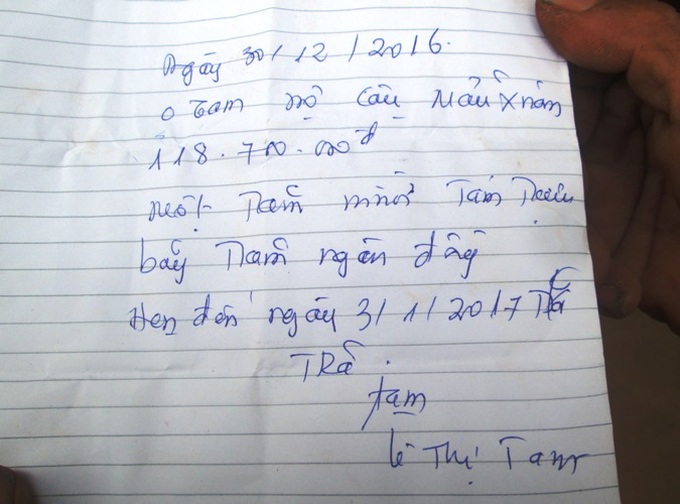 Ngày 30/12/2016.
o Tam nợ cậu Mẫu Xnăm
118.700.000đ
một Trăm mười Tám Triệu
bảy Trăm ngàn đồng
Hẹn đến ngày 31/1/2017 Trả
TRả.
Tam
lê Thị Tam